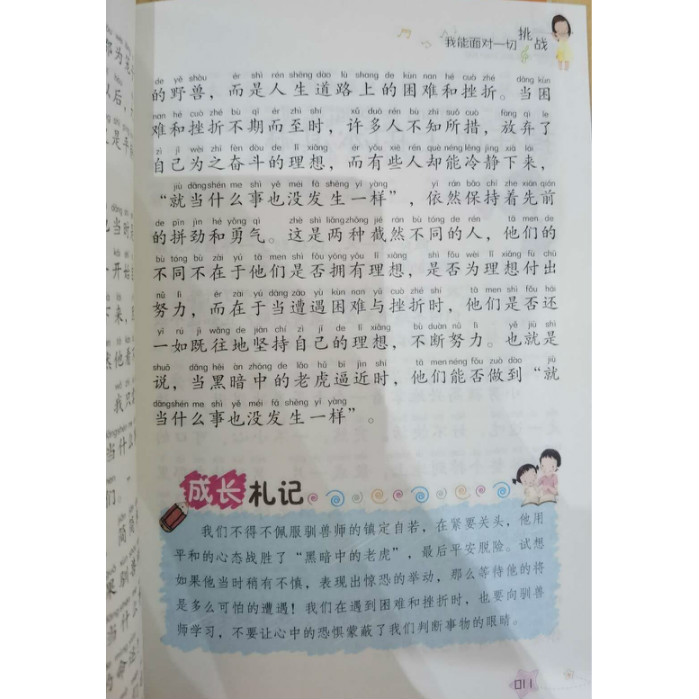 我能面对一切挑战
de yě shòu ér shì rén shēng dào lù shang de kùn nan hé cuò zhé dāng kùn
的野兽，而是人生道路上的困难和挫折。当困
nan hé cuò zhé bù qī ér zhì shí xǔ duō rén bù zhī suǒ cuò fàng qì le
难和挫折不期而至时，许多人不知所措，放弃了
zì jǐ wèi zhī fèn dòu de lǐ xiǎng ér yǒu xiē rén què néng lěng jìng xià lái
自己为之奋斗的理想，而有些人却能冷静下来，
jiù dāng shén me shì yě méi fā shēng yí yàng yī rán bǎo chí zhe xiān qián
“就当什么事也没发生一样”，依然保持着先前
de pīn jìn hé yǒng qì zhè shì liǎng zhǒng jié rán bù tóng de rén tā men de
的拼劲和勇气。这是两种截然不同的人，他们的
bù tóng bù zài yú tā men shì fǒu yōng yǒu lǐ xiǎng shì fǒu wèi lǐ xiǎng fù chū
不同不在于他们是否拥有理想，是否为理想付出
nǔ lì ér zài yú dāng zāo yù kùn nan yǔ cuò zhé shí tā men shì fǒu hái
努力，而在于当遭遇困难与挫折时，他们是否还
yì rú jì wǎng de jiān chí zì jǐ de lǐ xiǎng bú duàn nǔ lì yě jiù shì
一如既往地坚持自己的理想，不断努力。也就是
shuō dāng hēi àn zhōng de lǎo hǔ bī jìn shí tā men néng fǒu zuò dào jiù
说，当黑暗中的老虎逼近时，他们能否做到“就
dāng shén me shì yě méi fā shēng yí yàng
当什么事也没发生一样”。
成长札记
我们不得不佩服驯兽师的镇定自若，在紧要关头，他用
平和的心态战胜了“黑暗中的老虎”，最后平安脱险。试想
如果他当时稍有不慎，表现出惊恐的举动，那么等待他的将
是多么可怕的遭遇！我们在遇到困难和挫折时，也要向驯兽
师学习，不要让心中的恐惧蒙蔽了我们判断事物的眼睛。
011